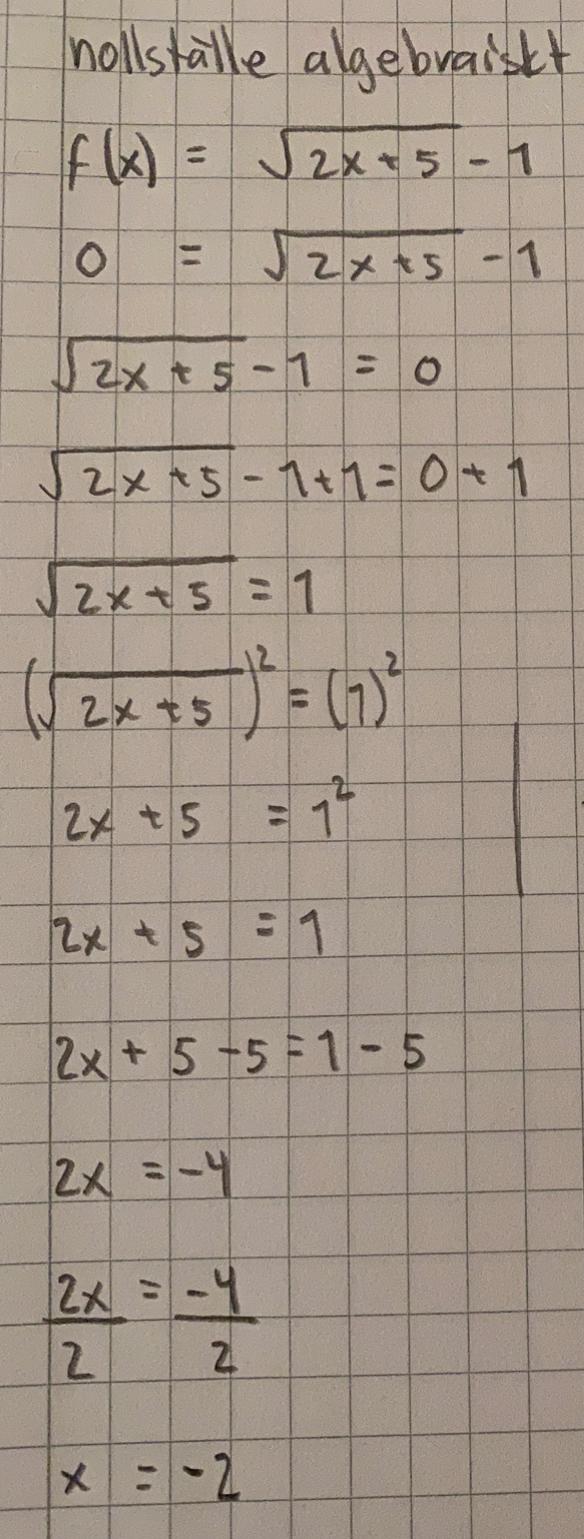 nollställe algebraiskt
f(x) = √(2x + 5) - 1
0 = √(2x + 5) - 1
√(2x + 5) - 1 = 0
√(2x + 5) - 1 + 1 = 0 + 1
√(2x + 5) = 1
(√(2x + 5))² = (1)²
2x + 5 = 1²
2x + 5 = 1
2x + 5 - 5 = 1 - 5
2x = -4
2x/2 = -4/2
x = -2